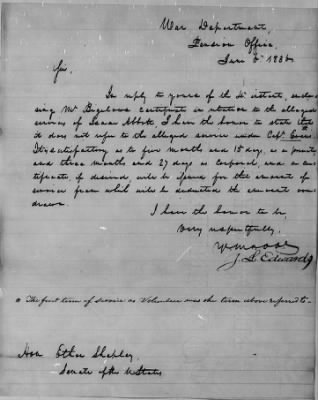 War Department,
Pension Office,
Sir,
In reply to yours of the inst, enclo-
sing Mr Bigelows certificate in relation to the alleged
services of Isaac Abbott, I have the honor to state that
it does not refer to the alleged service under Capt
It is satisfactory as to five months and 15 days, as a private
and three months and 27 days as Corporal, and a cer-
tificate if desired, will be issued for the amount of
service from which will be deducted the amount
drawn.
I have the honor to be,
Very respectfully,
J. L. Edwards
The first term of service as Volunteer was the term above referred to-
Hon Ether Shepley
Senate of the U States